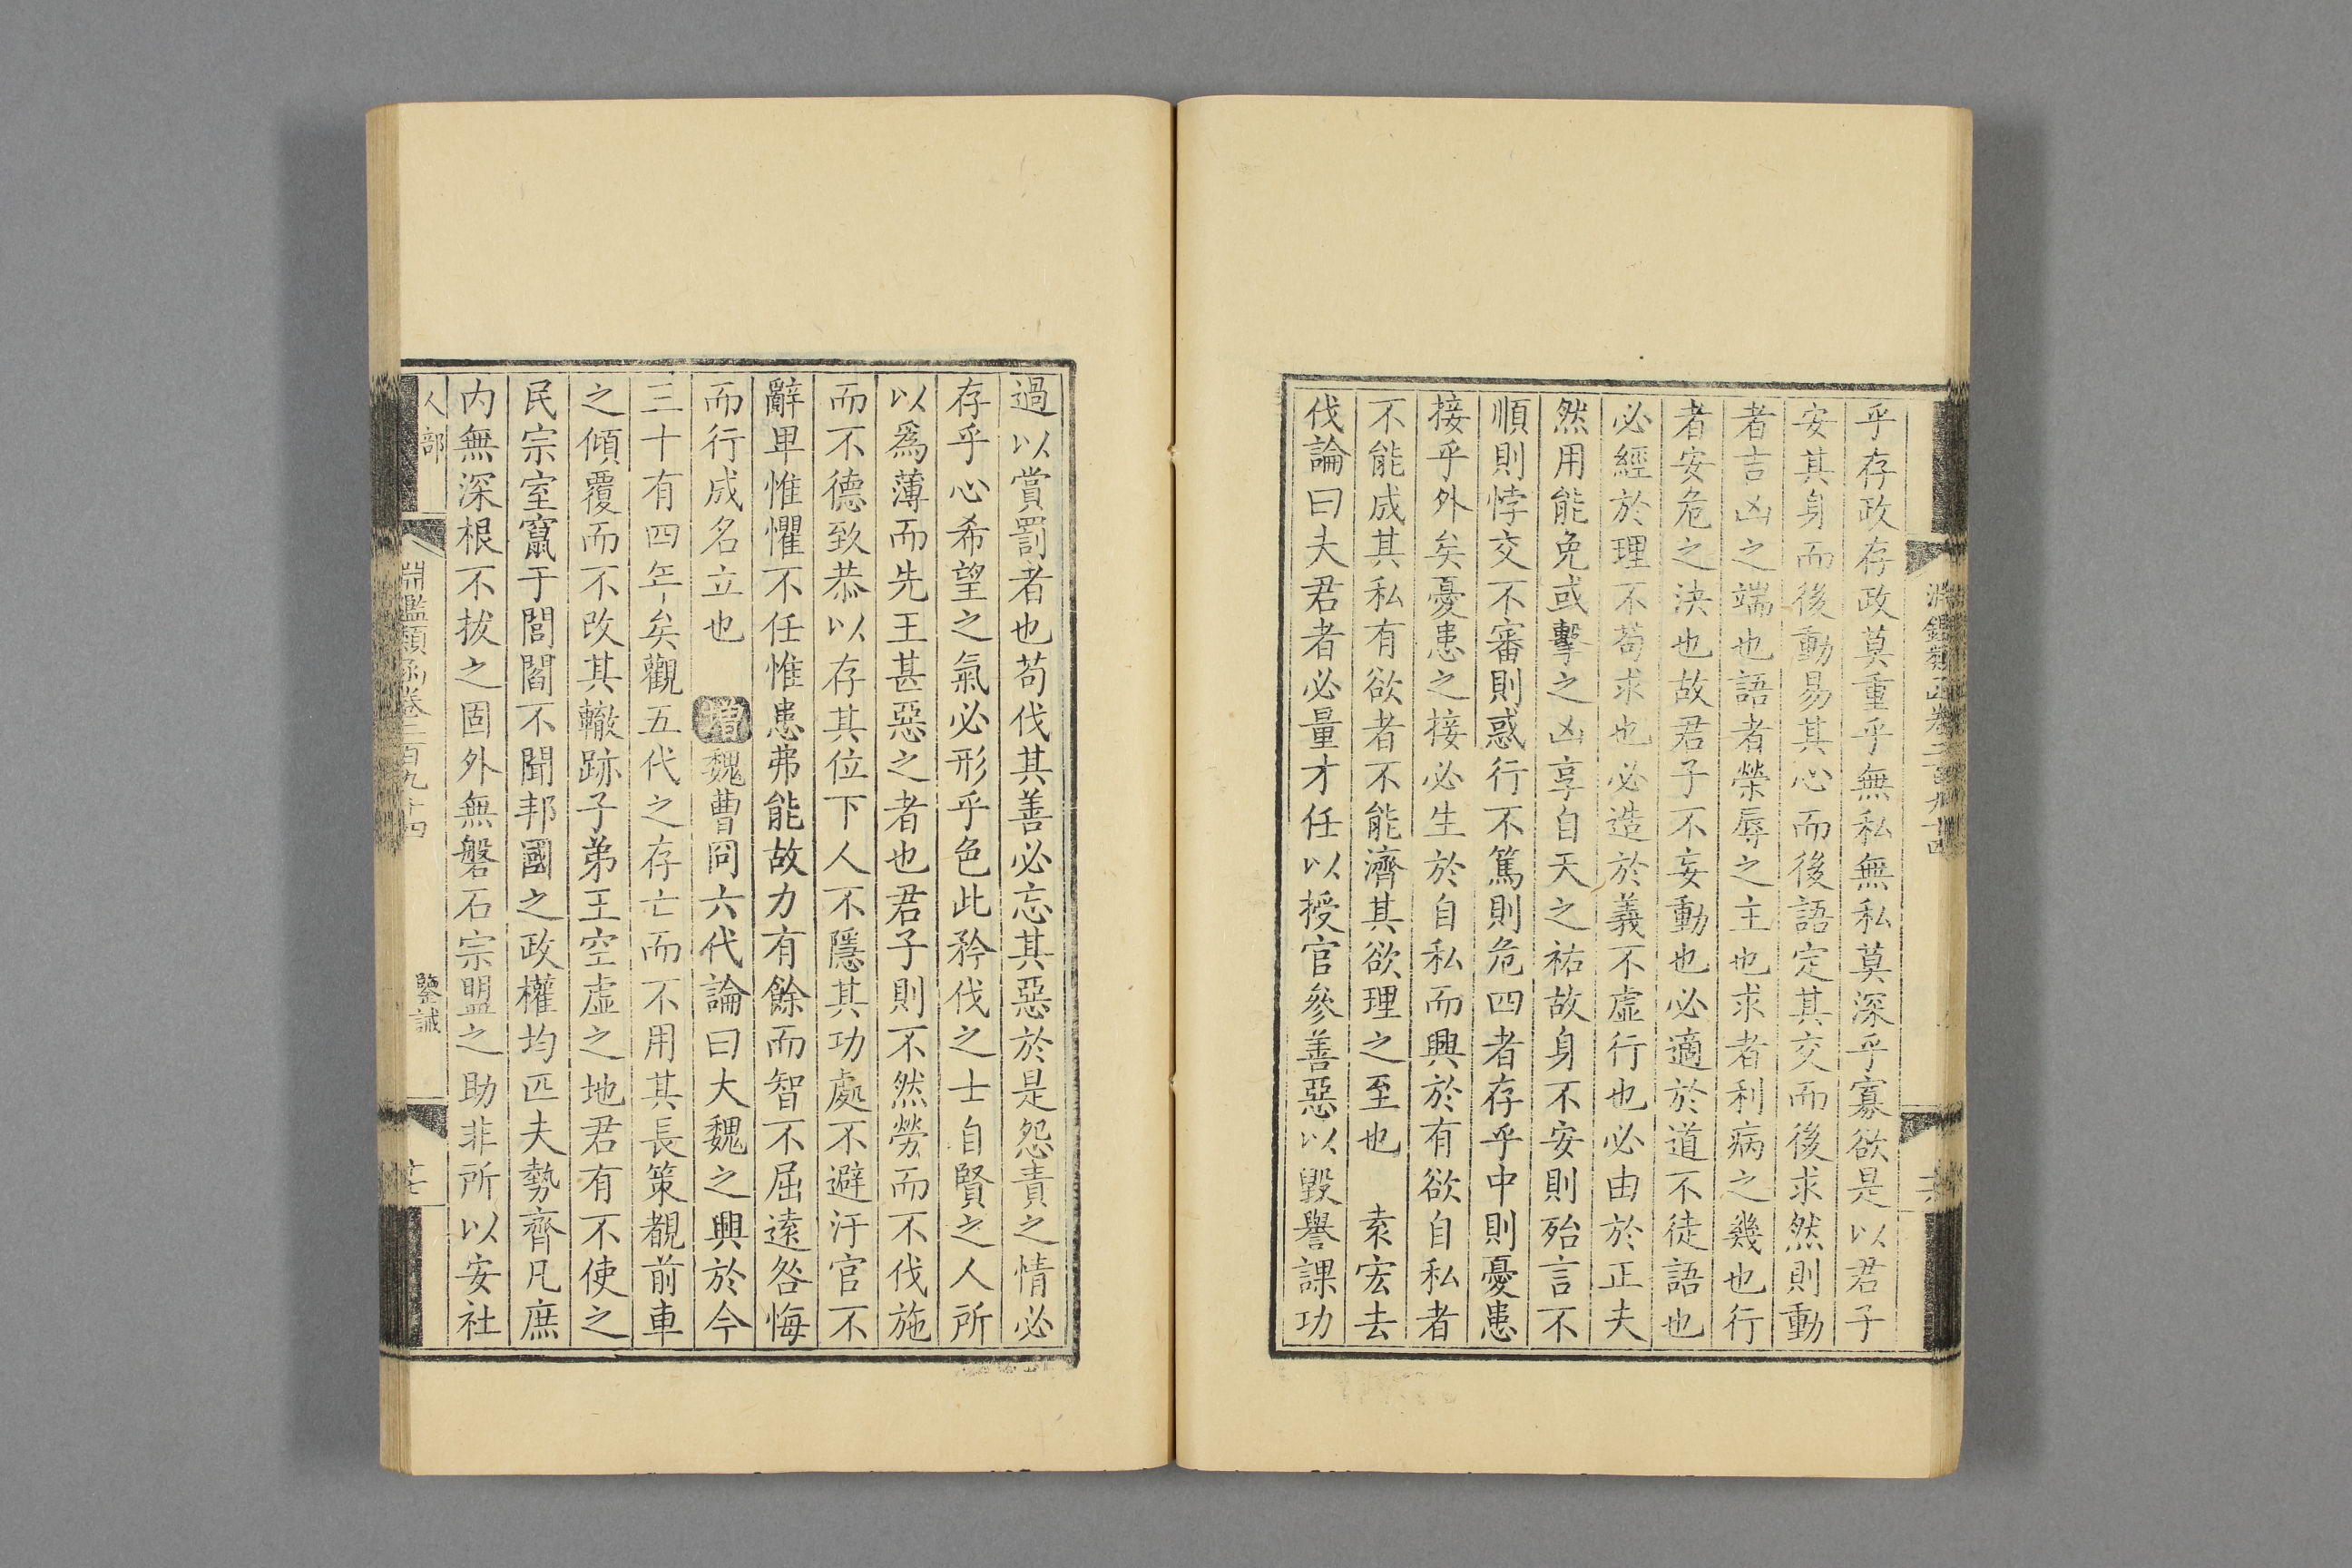 乎存政存政莫重乎無私無私莫深乎寡欲是以君子
安其身而後動易其心而後語定其交而後求然則動
者吉凶之端也語者榮辱之主也求者利病之幾也行
者安危之決也故君子不妄動也必適於道不徒語也
必經於理不苟求也必造於義不虛行也必由於正夫
然用能免或擊之凶享自天之祐故身不安則殆言不
順則悖交不審則惑行不篤則危四者存乎中則憂患
接乎外矣憂患之接必生於自私而興於有欲自私者
不能成其私有欲者不能濟其欲理之至也 袁宏去
伐論曰夫君者必量才任以授官參善惡以毀譽課功
過以賞罰者也苟伐其善必忘其惡於是怨責之情必
存乎心希望之氣必形乎色此矜伐之士自賢之人所
以爲薄而先王甚惡之者也君子則不然勞而不伐施
而不德致恭以存其位下人不隱其功處不避汙官不
辭卑惟懼不任惟患弗能故力有餘而智不屈遠咎悔
而行成名立也 增魏曹冏六代論曰大魏之興於今
三十有四年矣觀五代之存亡而不用其長策覩前車
之傾覆而不改其轍跡子弟王空虛之地君有不使之
民宗室竄于閭閻不聞邦國之政權均匹夫勢齊凡庶
內無深根不拔之固外無磐石宗盟之助非所以安社
人部
淵鑑類函卷二百九十四
鑒誡